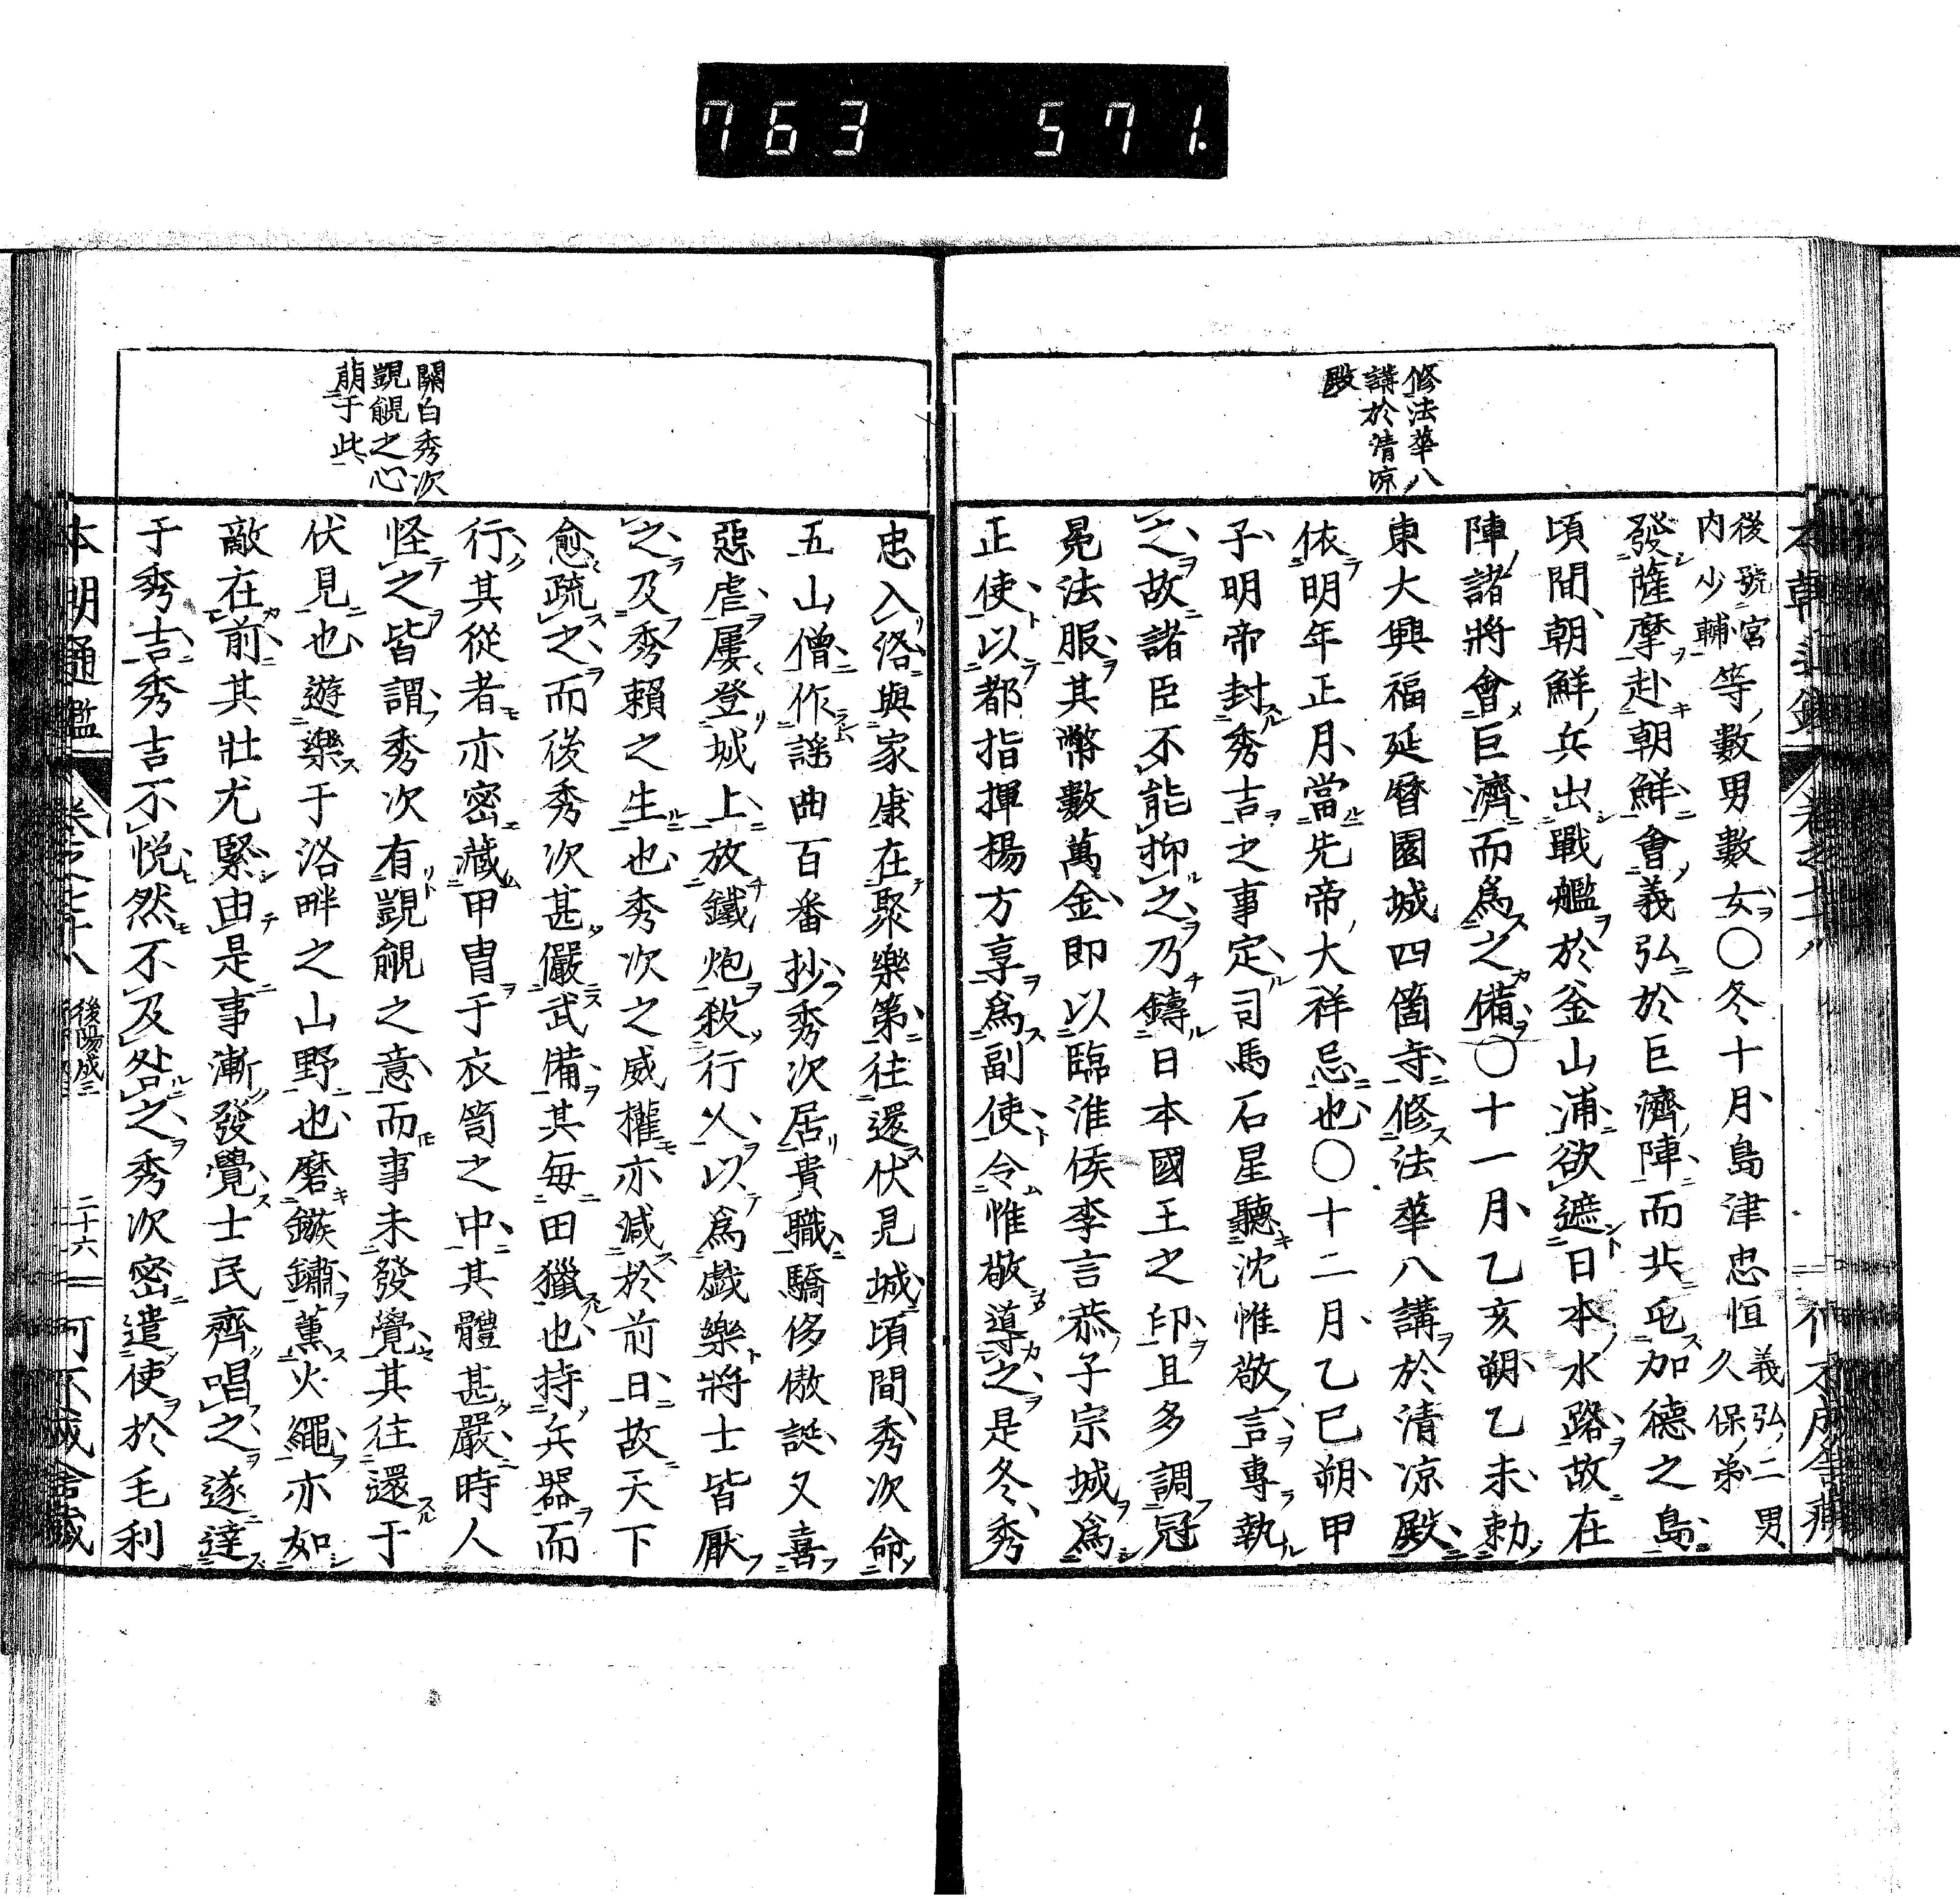 763 571.
修法華八
講於清凉
殿
後號宮
内少輔等數男數女○冬十月島津忠恒義弘二男
久保弟
發薩摩赴朝鮮會義弘於巨濟陣而共屯加德之島
頃間朝鮮兵出戰艦於釜山浦欲遮日本水路故在
陣諸將會巨濟而爲之備○十一月乙亥朔乙未勅
東大興福延暦園城四箇寺修法華八講於清凉殿
依明年正月當先帝大祥忌也○十二月乙巳朔甲
子明帝封秀吉之事定司馬石星聽沈惟敬言專執
之故諸臣不能抑之乃鑄日本國王之印且多調冠
冕法服其幣數萬金即以臨淮侯李言恭子宗城爲
正使以都指揮揚方享爲副使令惟敬導之是冬秀
關白秀次
覬覦之心
萠于此
忠入洛與家康在聚樂第往還伏見城頃間秀次命
五山僧作謡曲百番抄秀次居貴職驕侈傲誕又喜
惡虐屢登城上放鐵炮殺行人以爲戯樂將士皆厭
之及秀賴之生也秀次之威權亦減於前日故天下
愈疏之而後秀次甚儼武備其毎田獵也持兵器而
行其從者亦密藏甲冑于衣笥之中其體甚嚴時人
怪之皆謂秀次有覬覦之意而事未發覺其往還于
伏見也遊樂于洛畔之山野也磨鏃鏽薫火繩亦如
敵在前其壯尤緊由是事漸發覺士民齊唱之遂達
于秀吉秀吉不悦然不及咎之秀次密遣使於毛利
本朝通鑑 卷之七十八 後陽成二 二十六